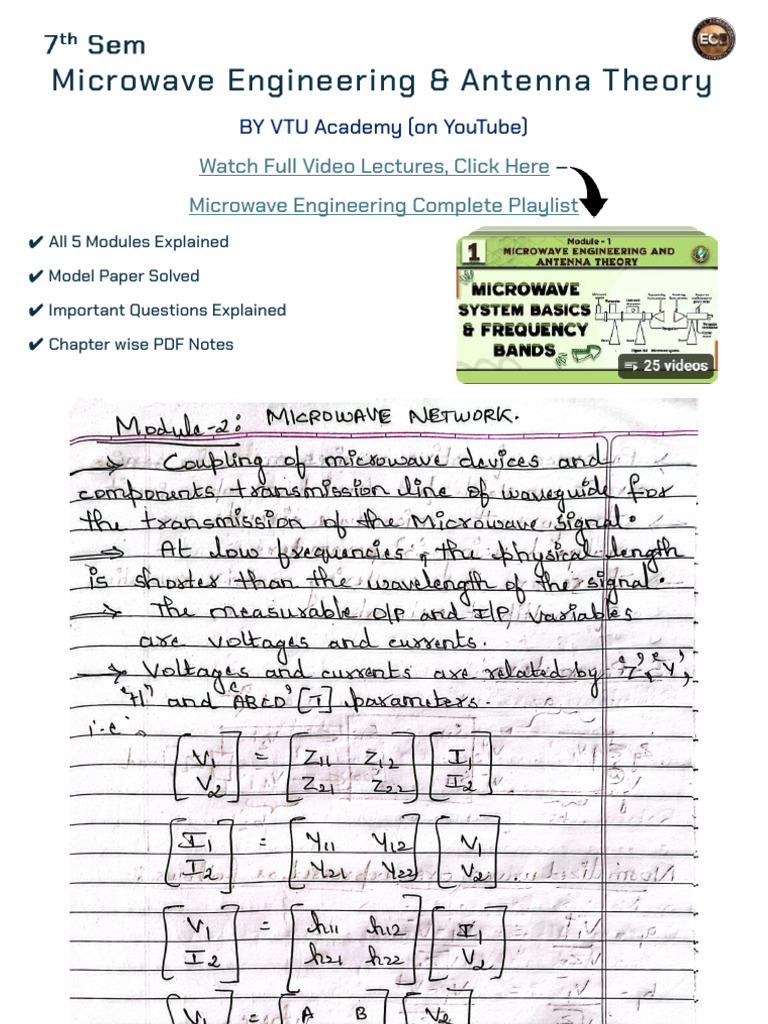 7th Sem
Microwave Engineering & Antenna Theory
BY VTU Academy (on YouTube)
Watch Full Video Lectures, Click Here –
Microwave Engineering Complete Playlist
✔ All 5 Modules Explained
✔ Model Paper Solved
✔ Important Questions Explained
✔ Chapter wise PDF Notes
ECE
Module - 1
1 MICROWAVE ENGINEERING AND
ANTENNA THEORY
MICROWAVE
SYSTEM BASICS
& FREQUENCY
BANDS
25 videos
Module-2: MICROWAVE NETWORK.
→ Coupling of microwave devices and
components, transmission line of waveguide for
the transmission of the Microwave signal.
→ At low frequencies, the physical length
is shorter than the wavelength of the signal.
→ The measurable O/P and I/P variables
are voltages and currents.
→ Voltages and currents are related by 'Z', 'Y',
'H' and 'ABCD' [T] parameters.
i.e.,
[V1 V2] = [Z11 Z12 Z21 Z22] [I1 I2]
[I1 I2] = [Y11 Y12 Y21 Y22] [V1 V2]
[V1 I2] = [h11 h12 h21 h22] [I1 V2]
[V1 = [A B [V2